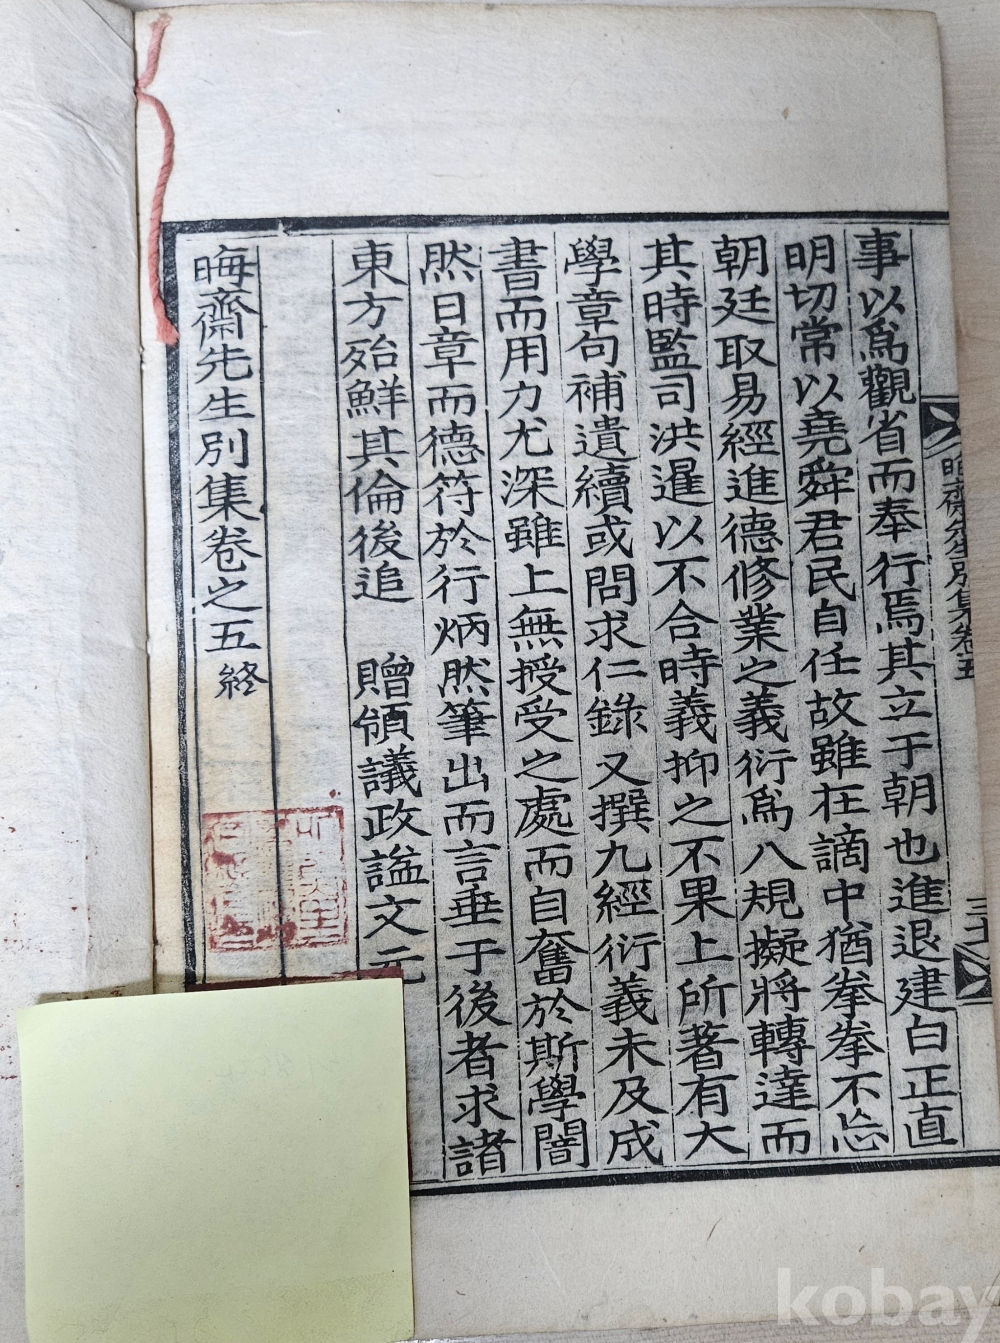 事以爲觀省而奉行焉其立于朝也進退建白正直
明切常以堯舜君民自任故雖在謫中猶拳拳不忘
朝廷取易經進德修業之義衍爲八規擬將轉達而
其時監司洪暹以不合時義抑之不果上所著有大
學章句補遺續或問求仁錄又撰九經衍義未及成
書而用力尤深雖上無授受之處而自奮於斯學闇
然日章而德符於行炳然筆出而言垂于後者求諸
東方殆鮮其倫後追 贈領議政諡文元
晦齋先生別集卷之五 終
晦齋先生別集卷五
kobay